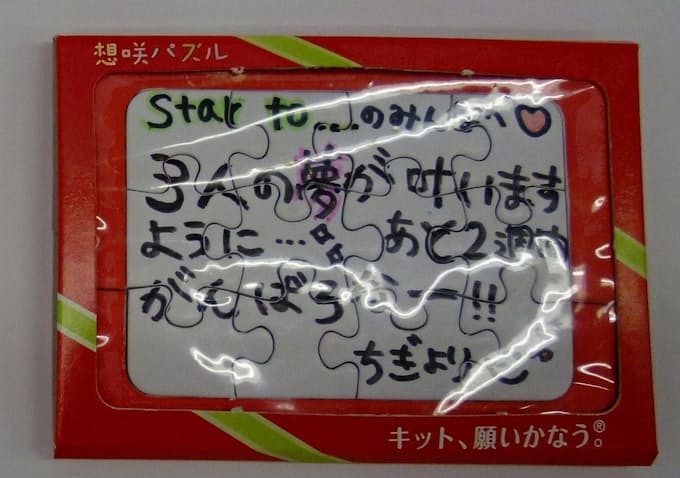 想咲パズル
Star to....のみんなへ♡
3人の夢が叶います
ように… あと2週間
がんばろうー!!
ちぎより
キット、願いかなう。®